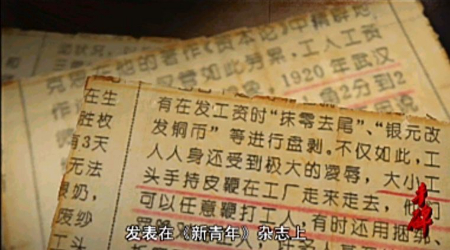 他的著作《资本论》中精辟论
如此劳累，工人工资
1920年武汉
角2分到2
在生
胜枚
有3天
无法
喂奶，
废纱
工头
有在发工资时“抹零去尾”、“银元改
发铜币”等进行盘剥。不仅如此，工
人人身还受到极大的凌辱，大小工
头手持皮鞭在工厂走来走去，他们
可以任意鞭打工人，有时还用捆绑、
丰碑
发表在《新青年》杂志上